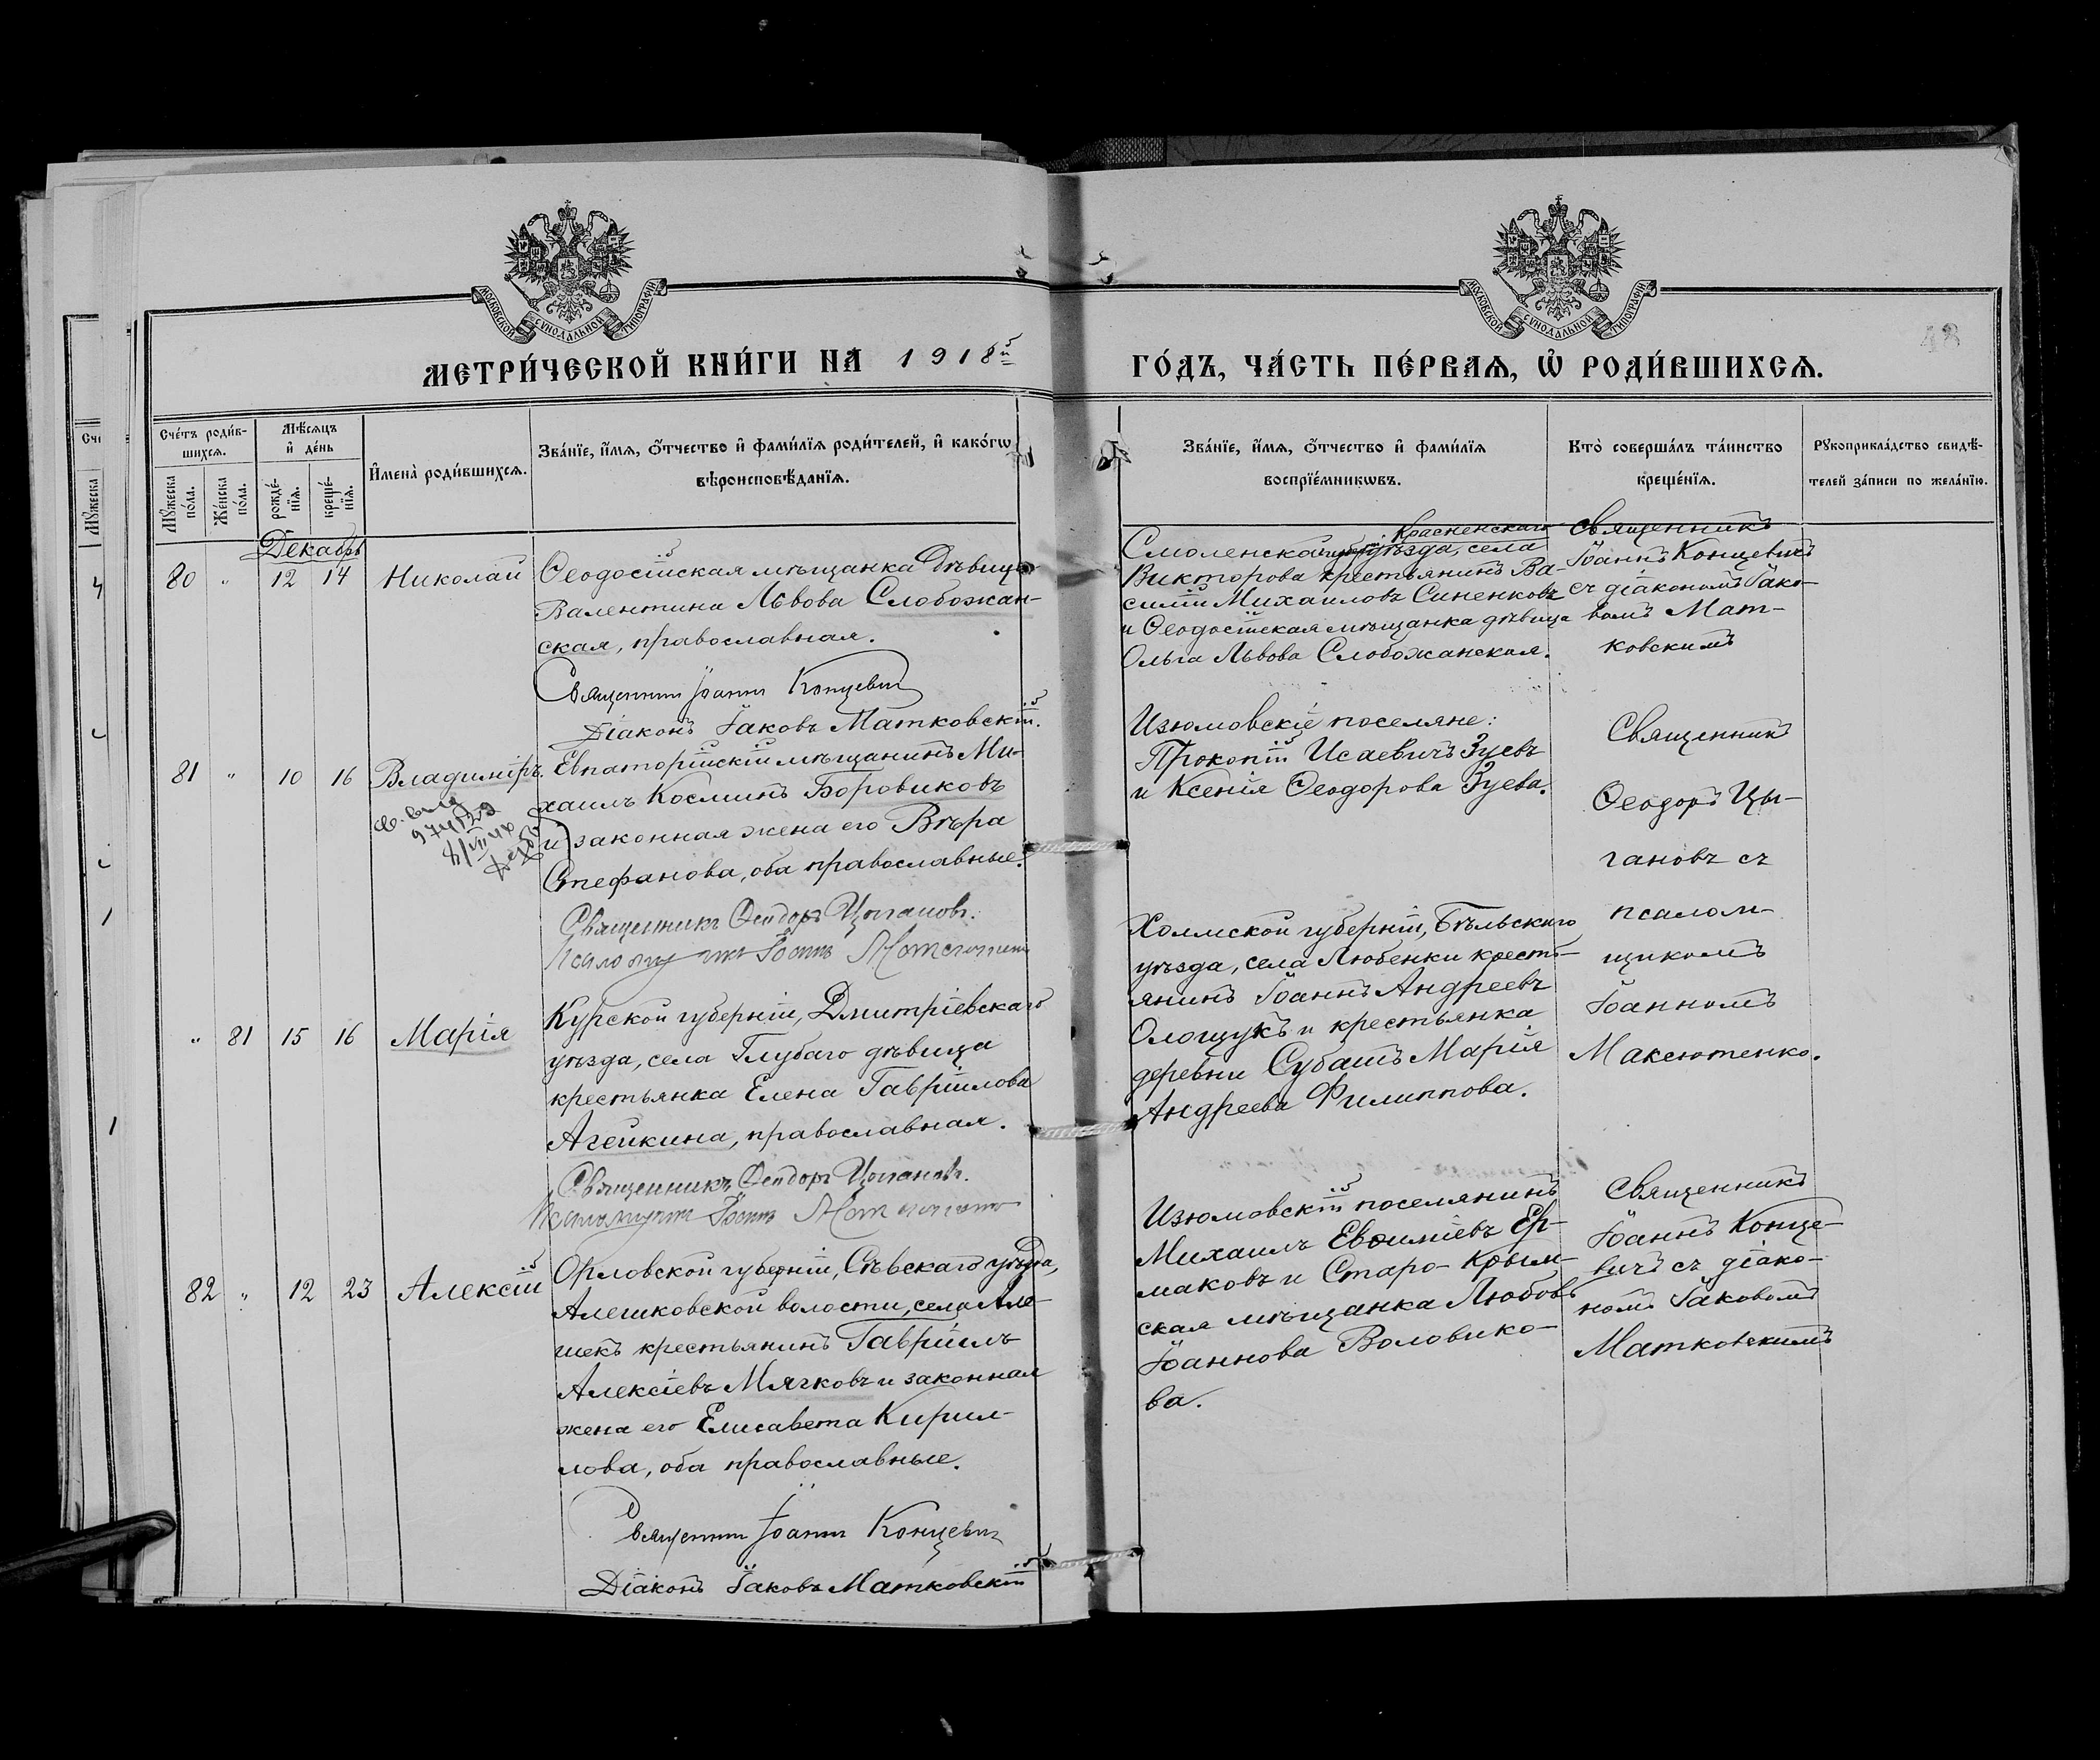 МОСКОВСКОЙ СѴНОДАЛЬНОЙ ТИПОГРАФІИ
МОСКОВСКОЙ СѴНОДАЛЬНОЙ ТИПОГРАФІИ
МЕТРИ́ЧЕСКОЙ КНИ́ГИ НА 1918й
ГО́ДЪ, ЧА́СТЬ ПЕ́РВАѦ, Ѡ РОДИ́ВШИХСѦ.
48
Сче́тъ роди́в-
шихсѧ.
Мꙋ́жеска по́ла.
Же́нска по́ла.
Мѣ́сѧцъ и҆ де́нь
рожде́-
нїѧ.
креще́-
нїѧ.
И҆мена̀ роди́вшихсѧ.
Зва́нїе, и҆́мѧ, ѻ҆́тчество и҆ фами́лїѧ роди́телей, и҆ како́гѡ
вѣроисповѣ́данїѧ.
Зва́нїе, и҆́мѧ, ѻ҆́тчество и҆ фами́лїѧ
воспрїе́мникѡвъ.
Кто̀ соверша́лъ та́инство
креще́нїѧ.
Рꙋкоприкла́дство свидѣ́-
телей за́писи по жела́нїю.
Декабрь
80 " 12 14 Николай
Ѳеодосійская мѣщанка дѣвица
Валентина Львова Слобожан-
ская, православная.
Священник Іоанн Концевич
Діаконъ Іаковъ Матковскій.
Красненскаго
Смоленской губерн. уѣзда, села
Викторова крестьянинъ Ва-
силій Михаиловъ Синенковъ
и Ѳеодосійская мѣщанка дѣвица
Ольга Львова Слобожанская.
Священникъ
Іоаннъ Концевичъ
съ діакономъ Іако-
вомъ Мат-
ковскимъ
81 " 10 16 Владиміръ.
Евпаторійскій мѣщанинъ Ми-
хаилъ Косминъ Боровиковъ
и законная жена его Вѣра
Стефанова, оба православные.
Священникъ Ѳеодоръ Цыгановъ.
Изюмовскіе поселяне:
Прокопій Исаевичъ Зуевъ
и Ксенія Ѳеодорова Зуева.
Священникъ
Ѳеодоръ Цы-
гановъ съ
псалом-
щикомъ
Іоанномъ
Максютенко.
" 81 15 16 Марія
Курской губерніи, Дмитріевскаго
уѣзда, села Глубаго дѣвица
крестьянка Елена Гавріилова
Агейкина, православная.
Священникъ Ѳеодоръ Цыгановъ.
Холмской губерніи, Бѣльскаго
уѣзда, села Любенки кресть-
янинъ Іоаннъ Андреевъ
Олощукъ и крестьянка
деревни Субашъ Марія
Андреева Филиппова.
82 " 12 23 Алексій
Орловской губерніи, Сѣвскаго уѣзда,
Алешковской волости, села Але-
шекъ крестьянинъ Гавріилъ
Алексіевъ Мягковъ и законная
жена его Елисавета Кирил-
лова, оба православные.
Священник Іоанн Концевич
Діаконъ Іаковъ Матковскій
Изюмовскій поселянинъ
Михаилъ Евѳиміевъ Ер-
маковъ и Старо-Крым-
ская мѣщанка Любовь
Іоаннова Воловико-
ва.
Священникъ
Іоаннъ Конце-
вичъ съ діако-
номъ Іаковомъ
Матковскимъ